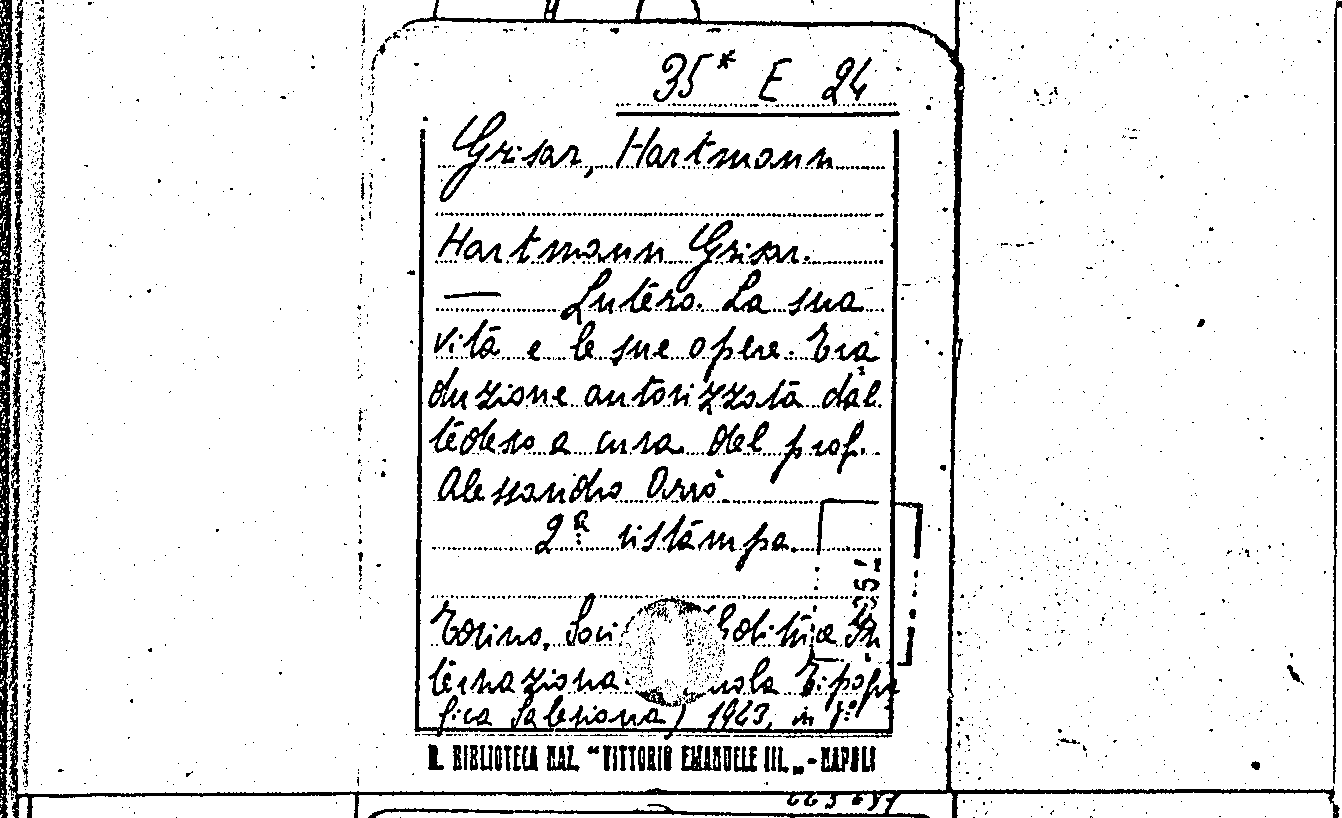 35* E 24
Grisar, Hartmann
Hartmann Grisar.
— Lutero. La sua
vita e le sue opere. Tra
duzione autorizzata dal
tedesco a cura del prof.
Alessandro Arrò.
2ª ristampa.
Torino, Soci Editrice In
ternaziona Tipogra
fica Salesiana) 1943, in 8º
R. BIBLIOTECA NAZ. "VITTORIO EMANUELE III." - NAPOLI